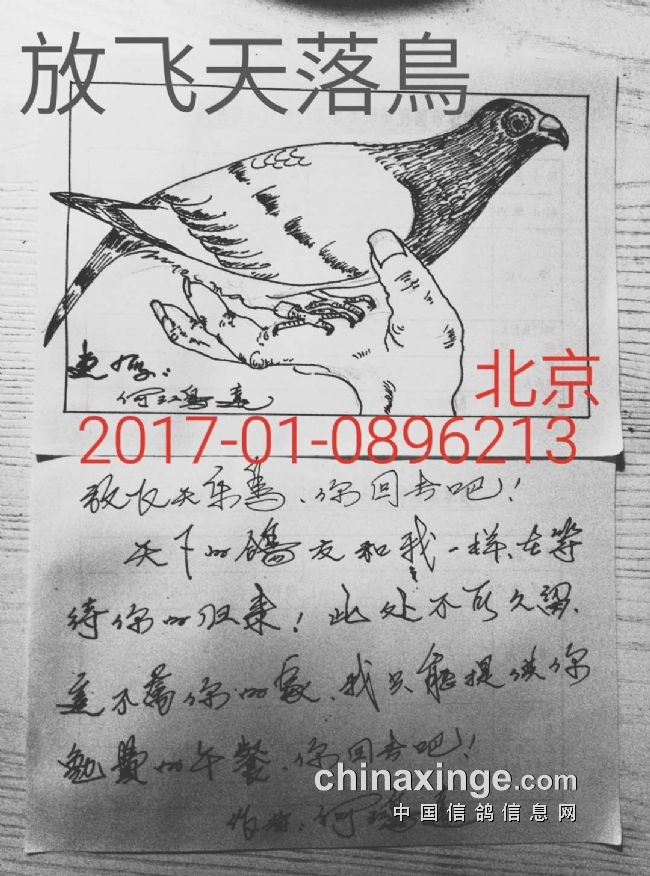 放飞天落鳥
北京
2017-01-0896213
放飞天落鸟、你回去吧！
天下的鴿友和我一样、在等
待你的归来！此处不可久留、
这不属你的家、我只能提供你
免費的午餐、你回去吧！
作者：何
chinaxinge.com
中国信鸽信息网